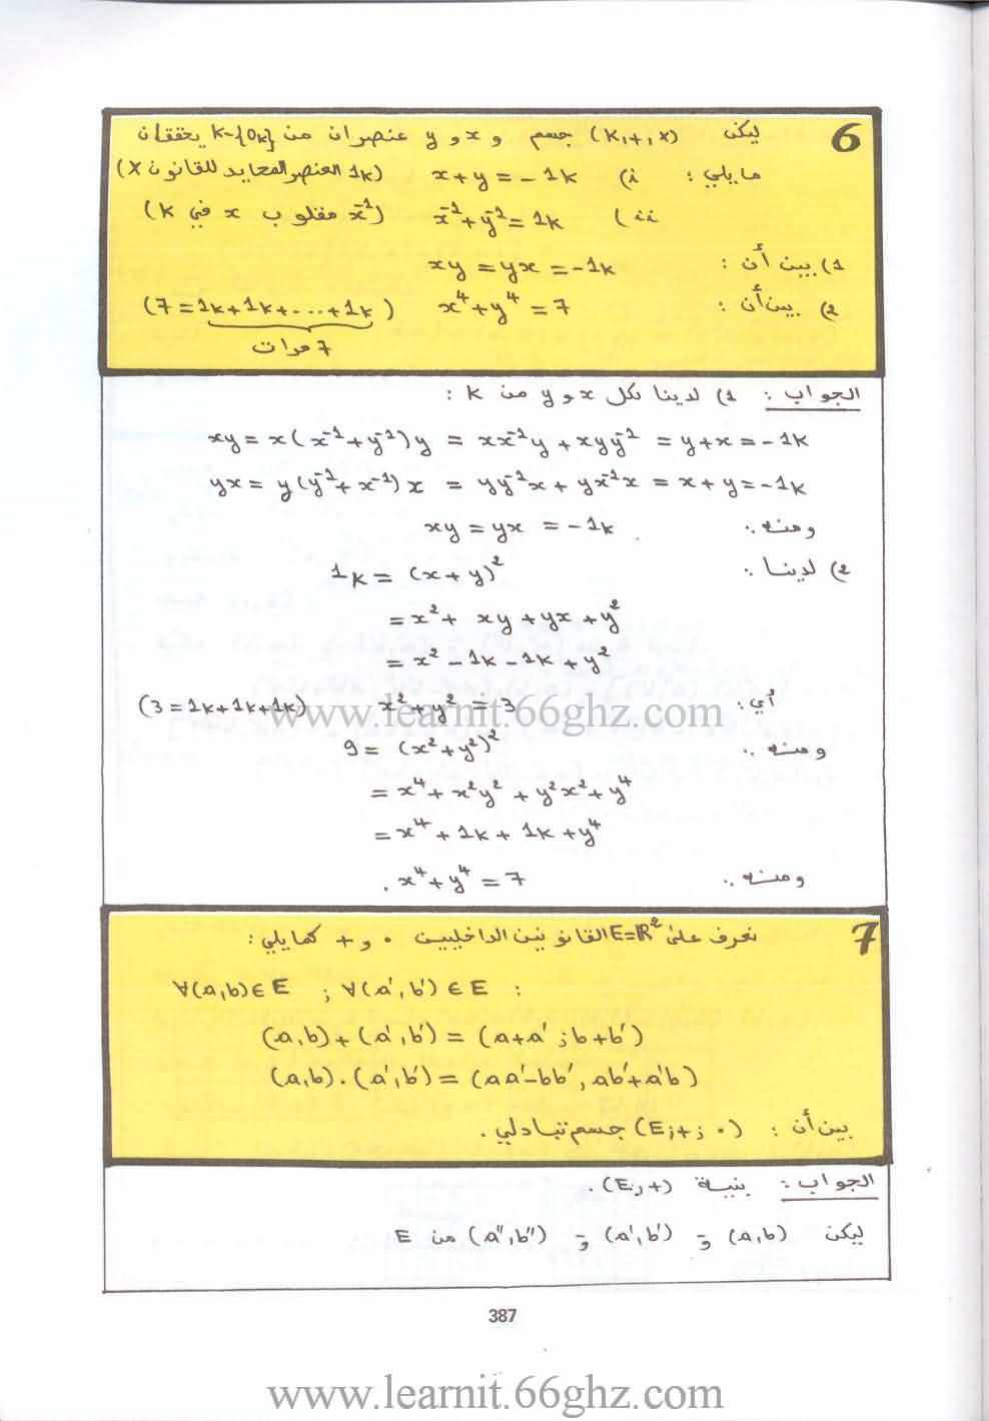 6 ليكن (K,+,×) جسم و x و y عنصران من K-{0k} يحققان
ما يلي : i) x+y = -1k (1k العنصر المحايد للقانون ×)
ii) x⁻¹+y⁻¹ = 1k (x⁻¹ مقلوب x في K)
1) بين أن : xy = yx = -1k
2) بين أن : x⁴+y⁴ = 7 (7 = 1k+1k+...+1k)
7 مرات
الجواب : 1) لدينا لكل x و y من K :
xy = x(x⁻¹+y⁻¹)y = xx⁻¹y + xyy⁻¹ = y+x = -1k
yx = y(y⁻¹+x⁻¹)x = yy⁻¹x + yx⁻¹x = x+y = -1k
ومنه : xy = yx = -1k
2) لدينا : 1k = (x+y)²
= x² + xy + yx + y²
= x² - 1k - 1k + y²
أي : x²+y² = 3 (3 = 1k+1k+1k)
www.learnit.66ghz.com
ومنه : 9 = (x²+y²)²
= x⁴ + x²y² + y²x² + y⁴
= x⁴ + 1k + 1k + y⁴
ومنه : x⁴+y⁴ = 7 .
7 نعرف على E=ℝ² القانونين الداخليين • و + كما يلي :
∀(a,b)∈E ; ∀(a',b')∈E :
(a,b)+(a',b') = (a+a' ; b+b')
(a,b).(a',b') = (aa'-bb', ab'+a'b)
بين أن : (E;+;•) جسم تبادلي .
الجواب : بنية (E;+) .
ليكن (a,b) و (a',b') و (a",b") من E
387
www.learnit.66ghz.com